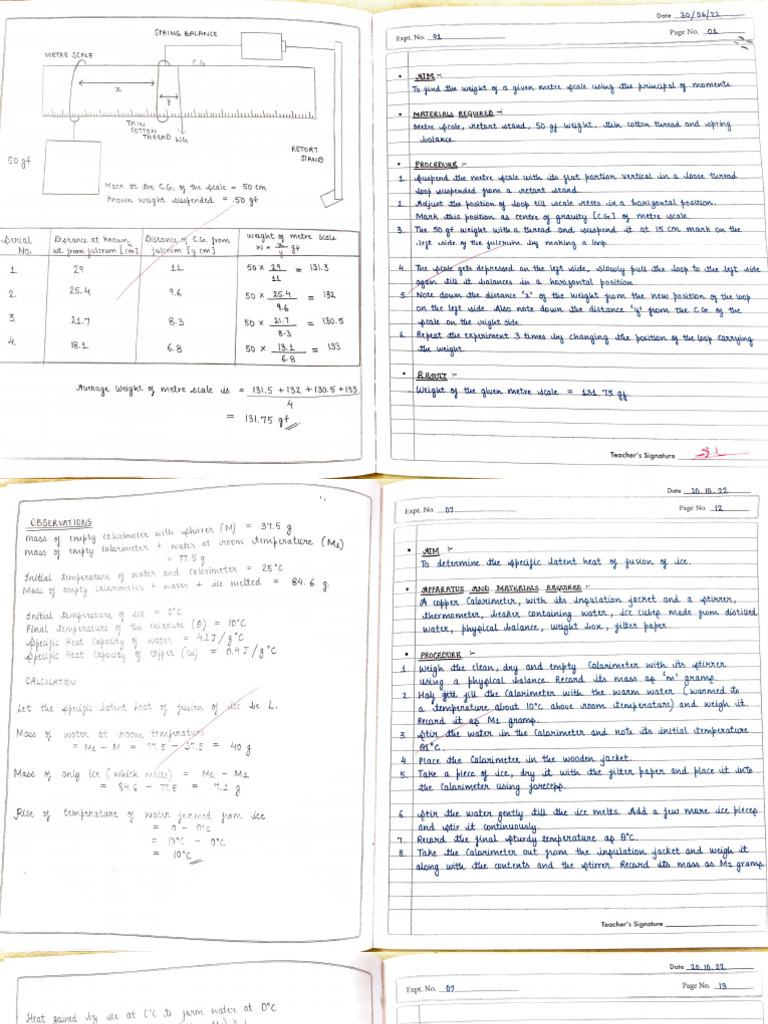 SPRING BALANCE
METRE SCALE
C.G
x
y
THIN
COTTON
THREAD
50 gf
RETORT
STAND
Mark at the C.G. of the scale = 50 cm
Known weight suspended = 50 gf
Serial No.
Distance of known wt. from fulcrum [x cm]
Distance of C.G. from fulcrum [y cm]
Weight of metre scale W = x/y gf
1. 29 11 50 × 29/11 = 131.3
2. 25.4 9.6 50 × 25.4/9.6 = 132
3. 21.7 8.3 50 × 21.7/8.3 = 130.5
4. 18.1 6.8 50 × 13.1/6.8 = 133
Average Weight of metre scale is = 131.5 + 132 + 130.5 + 133 / 4
= 131.75 gf
Date 30/06/22
Expt. No. 01 Page No. 01
• AIM :-
To find the weight of a given metre scale using the principal of moments.
• MATERIALS REQUIRED :-
Metre scale, retort stand, 50 gf weight, thin cotton thread and spring
balance.
• PROCEDURE :-
1. Suspend the metre scale with its flat portion vertical in a loose thread
loop suspended from a retort stand.
2. Adjust the position of loop till scale rests in a horizontal position.
Mark this position as center of gravity [C.G] of metre scale.
3. The 50 gf weight with a thread and suspend it at 15 cm mark on the
left side of the fulcrum by making a loop.
4. The scale gets depressed on the left side, slowly pull the loop to the left side
again till it balances in a horizontal position.
5. Note down the distance 'x' of the weight from the new position of the loop
on the left side. Also note down the distance 'y' from the C.G. of the
scale on the right side.
6. Repeat the experiment 3 times by changing the position of the loop carrying
the weight.
• RESULT :-
Weight of the given metre scale = 131.75 gf.
Teacher's Signature
OBSERVATIONS
Mass of empty calorimeter with stirrer (M) = 37.5 g
mass of empty calorimeter + water at room temperature (M1)
= 77.5 g
Initial temperature of water and calorimeter = 25°C
Mass of empty calorimeter + water + ice melted = 84.6 g.
Initial temperature of ice = 0°C
Final temperature of the mixture (θ) = 10°C
Specific Heat Capacity of water = 4.2 J/g°C
Specific Heat Capacity of copper (Cu) = 0.4 J/g°C
CALCULATION
Let the specific latent heat of fusion of ice be L.
Mass of water at room temperature
= M1 - M = 77.5 - 37.5 = 40 g
Mass of only ice (which melts) = M2 - M1
= 84.6 - 77.5 = 7.1 g
Rise of temperature of water formed from ice
= θ - 0°C
= 10°C - 0°C
= 10°C
Date 20.10.22
Expt. No. 07 Page No. 12
• AIM :-
To determine the specific latent heat of fusion of ice.
• APPARATUS AND MATERIALS REQUIRED :-
A copper Calorimeter, with its insulation jacket and a stirrer,
thermometer, beaker containing water, ice cubes made from distilled
water, physical balance, weight box, filter paper.
• PROCEDURE :-
1. Weigh the clean, dry and empty Calorimeter with its stirrer
using a physical balance. Record its mass as 'm' grams.
2. Half fill the Calorimeter with the warm water (warmed to
a temperature about 10°C above room temperature) and weigh it.
Record it as M1 grams.
3. Stir the water in the Calorimeter and note its initial temperature
θ1°C.
4. Place the Calorimeter in the wooden jacket.
5. Take a piece of ice, dry it with the filter paper and place it into
the Calorimeter using forceps.
6. Stir the water gently till the ice melts. Add a few more ice pieces
and stir it continuously.
7. Record the final sturdy temperature as θ°C.
8. Take the Calorimeter out from the insulation jacket and weigh it
along with the contents and the stirrer. Record its mass as M2 gramp
Teacher's Signature
Heat gained by ice at 0°C to form water at 0°C
Date 20.10.22
Expt. No. 07 Page No. 13